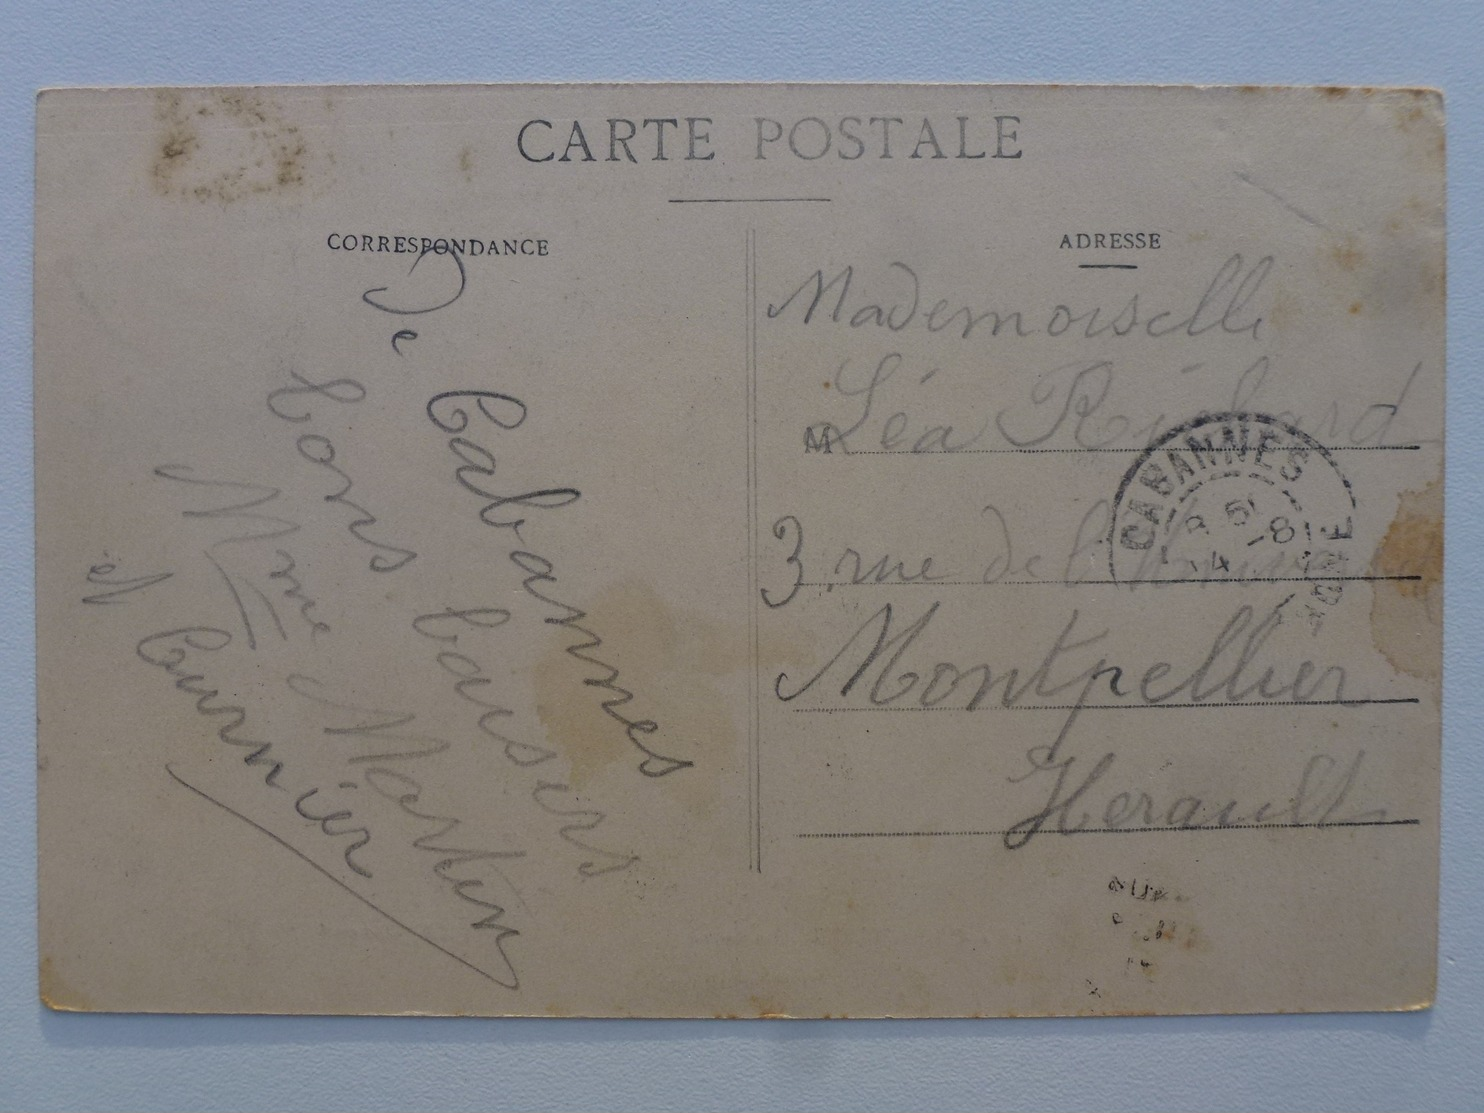 CARTE POSTALE
CORRESPONDANCE
De Cabannes
bons baisers
Mme Martin
et Curnier
ADRESSE
Mademoiselle
M Léa Richard
3 rue de
Montpellier
Hérault
CABANNES
-8
14